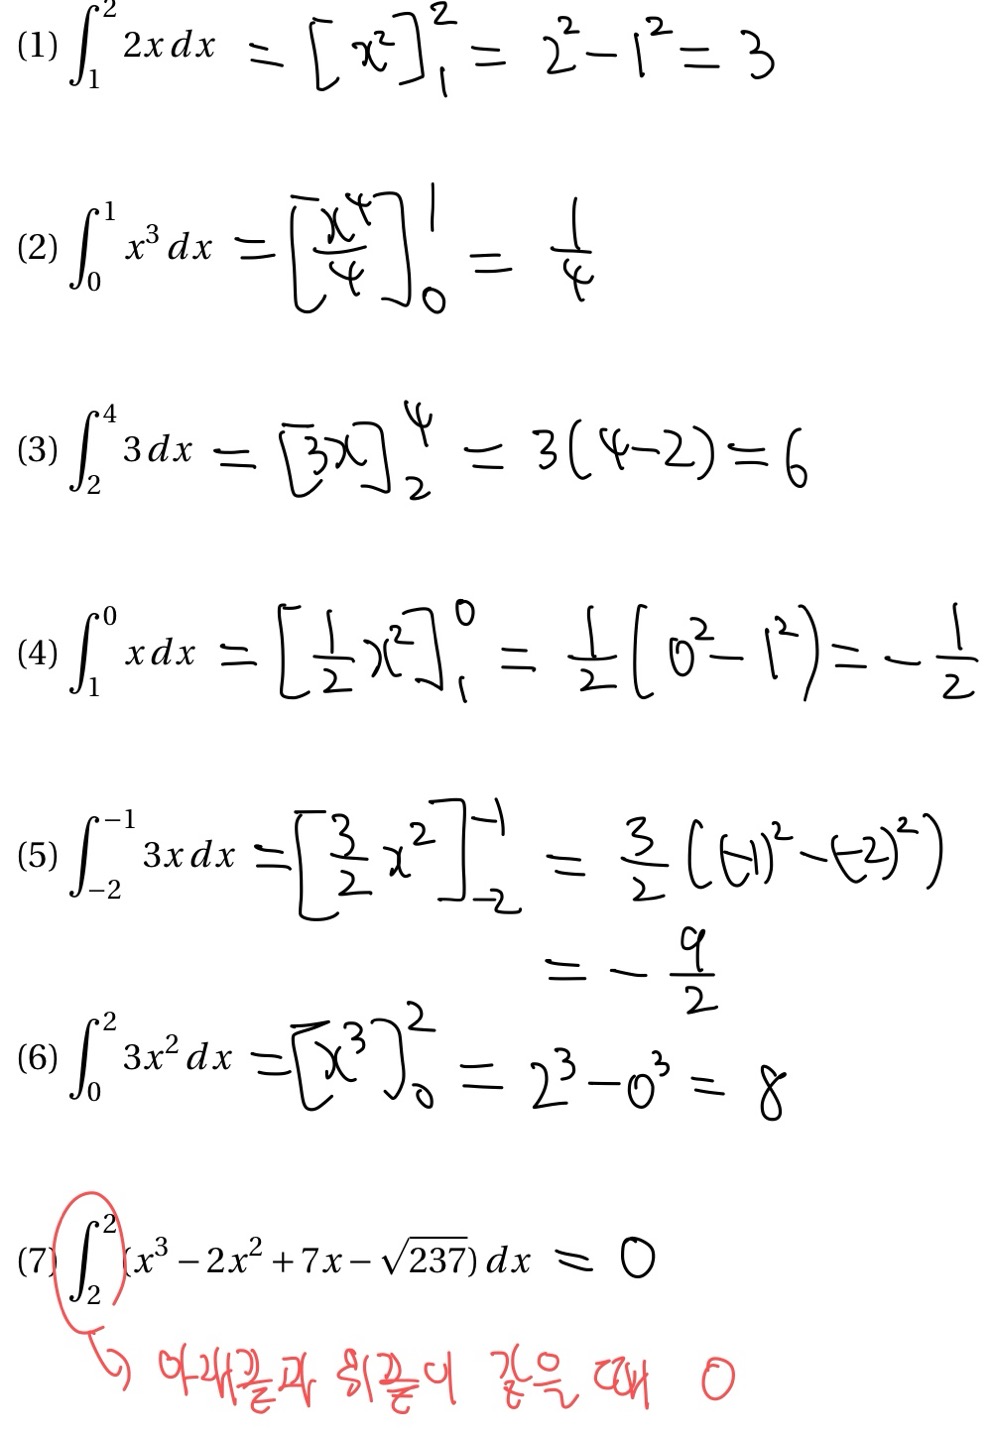 (1) ∫₁² 2x dx = [x²]₁² = 2² − 1² = 3
(2) ∫₀¹ x³ dx = [x⁴/4]₀¹ = 1/4
(3) ∫₂⁴ 3 dx = [3x]₂⁴ = 3(4−2) = 6
(4) ∫₁⁰ x dx = [1/2 x²]₁⁰ = 1/2 (0² − 1²) = − 1/2
(5) ∫₋₂⁻¹ 3x dx = [3/2 x²]₋₂⁻¹ = 3/2 ((-1)² − (-2)²)
= − 9/2
(6) ∫₀² 3x² dx = [x³]₀² = 2³ − 0³ = 8
(7) ∫₂² (x³ − 2x² + 7x − √237) dx = 0
↳ 아래끝과 위끝이 같을 때 0